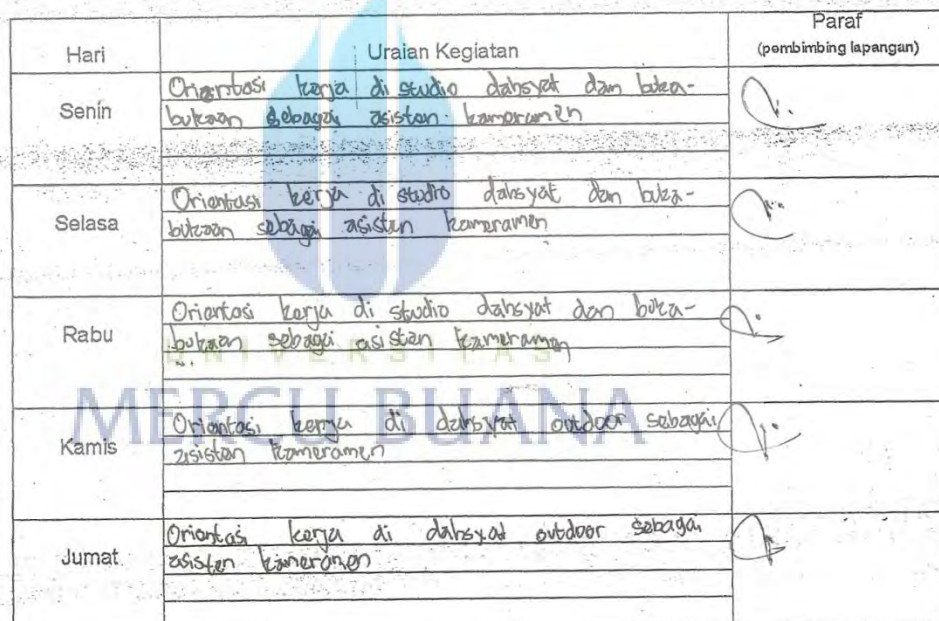 Hari
Uraian Kegiatan
Paraf
(pembimbing lapangan)
Senin
Orientasi kerja di studio dahsyat dan buka-
bukaan sebagai asisten kameramen
Selasa
Orientasi kerja di studio dahsyat dan buka-
bukaan sebagai asisten kameramen
Rabu
Orientasi kerja di studio dahsyat dan buka-
bukaan sebagai asisten kameramen
UNIVERSITAS
MERCU BUANA
Kamis
Orientasi kerja di dahsyat outdoor sebagai
asisten kameramen
Jumat
Orientasi kerja di dahsyat outdoor sebagai
asisten kameramen